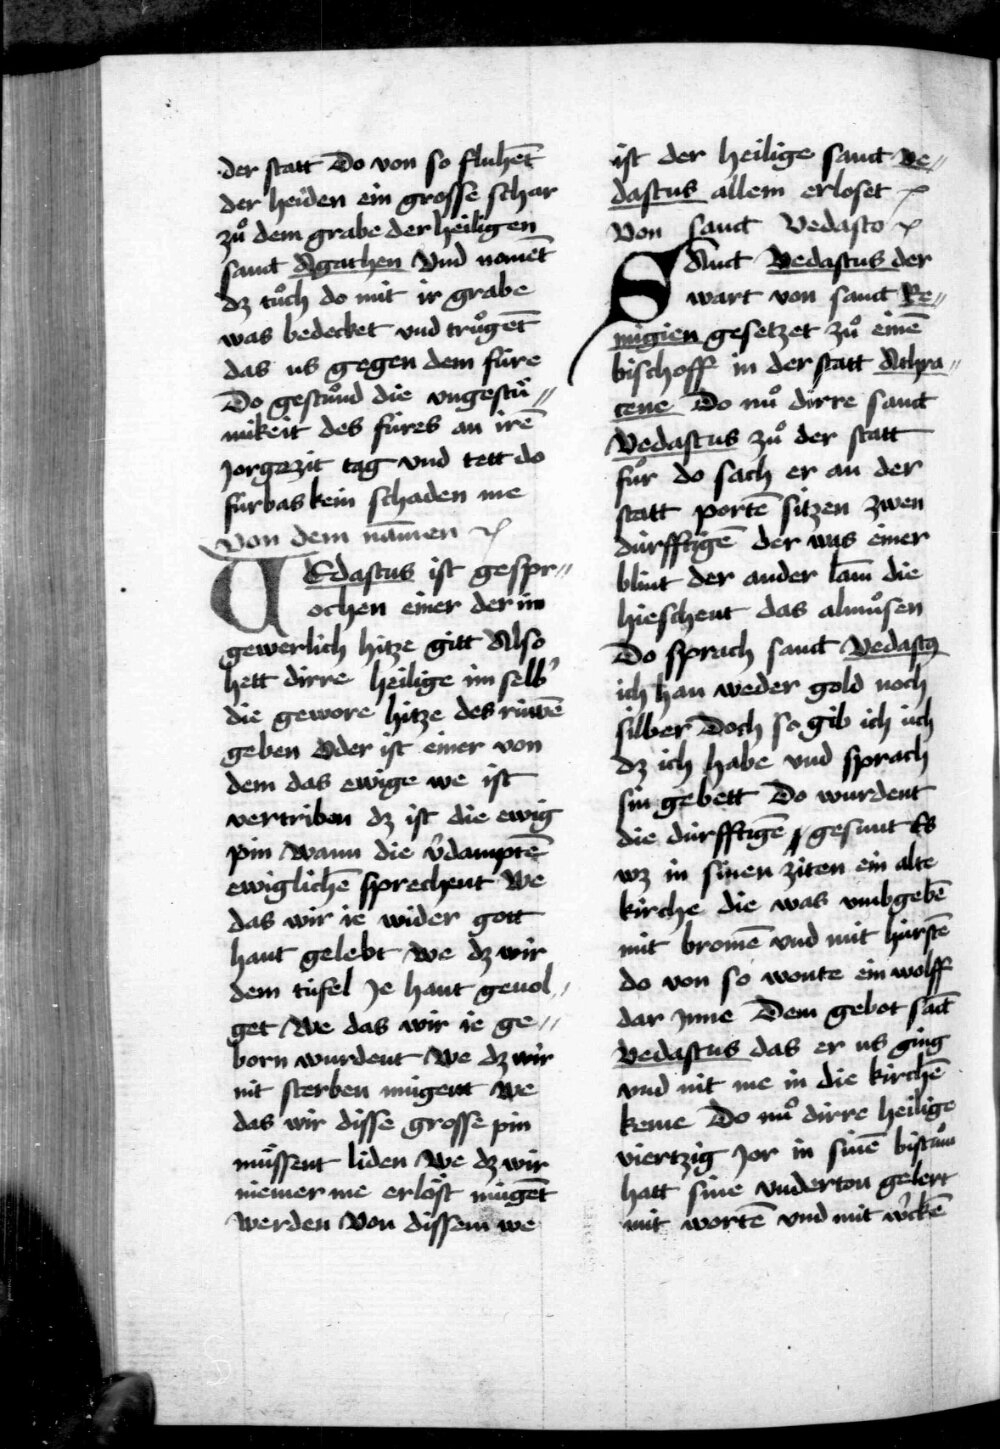 der statt Do von so fluhēt
der heiden ein grosse schar
zuͦ dem grabe der heiligen
sanct Agathen Vnd nomēt
dz tuͦch do mit ir grabe
was bedecket vnd truͦgēt
das us gegen dem füre
Do gestuͦnd die vngestuͤ//
mikeit des füres an irē
Jorgezit tag vnd tett do
fürbas kein schaden me
Von dem nāmen
VEdastus ist gespr//
ochen einer der im
gewerlich hitze gitt Also
hett dirre heilige im selb'
die gewore hitze des rüwē
geben Oder ist einer von
dem das ewige we ist
vertriben dz ist die ewig
pin Wann die v'damptē
ewiglichē sprechent We
das wir ie wider gott
hant gelebt We dz wir
dem tüfel Je hant geuol//
get We das wir ie ge//
born wurdent We dz wir
nit sterben mügent We
das wir disse grosse pin
muͤssent liden We dz wir
niemer me erloͤst mügēt
werden Von dissem we
ist der heilige sanct Ve//
dastus allem erloset
Von sanct Vedasto
SAnct Vedastus der
wart von sanct Re//
migien gesetzet zuͦ einē
bischoff in der statt Athra//
tene Do nuͦ dirre sanct
Vedastus zuͦ der statt
fuͦr do sach er an der
statt portē sitzen zwen
dürfftigē der was einer
blint der ander lam die
hieschent das almuͦsen
Do sprach sanct Vedastꝰ
ich han weder gold noch
silber Doch so gib ich üch
dz ich habe vnd sprach
sin gebett Do wurdent
die dürfftigē gesunt Es
wz in sinen ziten ein alte
kirche die was vmbgebē
mit bromē vnd mit hürstē
do von so wonte ein wolff
dar Jnne Dem gebot sāct
Vedastus das er us ging
vnd nit me in die kirchē
keme Do nuͦ dirre heilige
viertzig Jor in sinē bistuͦm
hatt sine vnderton gelert
mit wortē vnd mit w'ckē